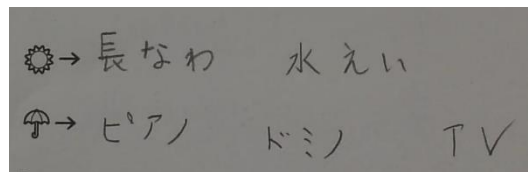 ☀→ 長なわ 水えい
☂→ ピアノ ドミノ TV